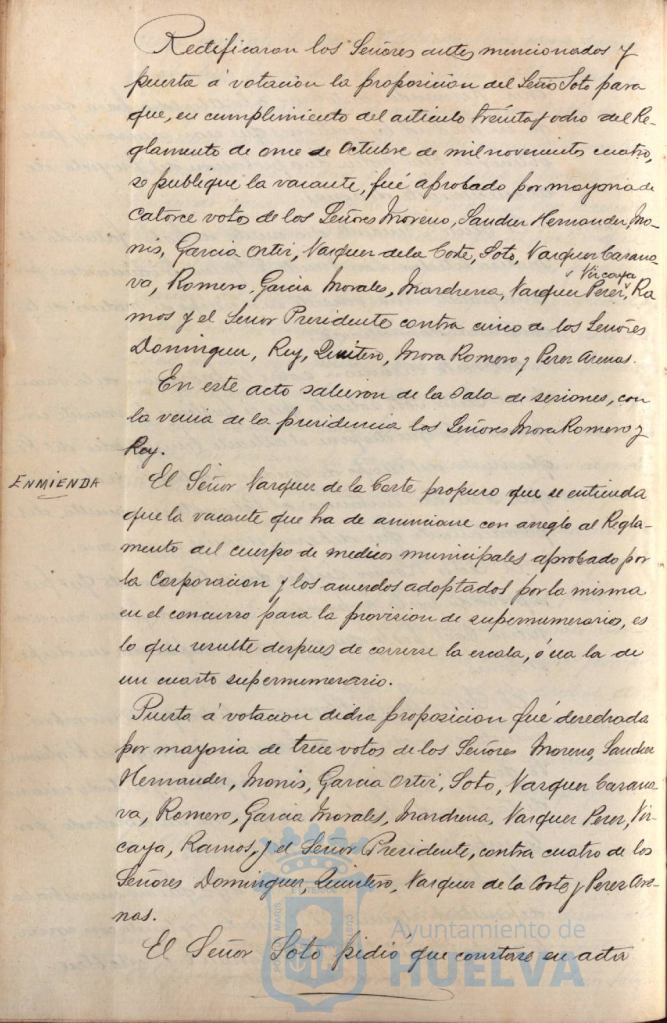 Rectificaron los Señores antes mencionados y
puesta á votacion la proposicion del Señor Soto para
que, en cumplimiento del articulo treinta y ocho del Re-
glamento de once de Octubre de mil novecientos cuatro,
se publique la vacante, fué aprobado por mayoria de
catorce votos de los Señores Moreno, Sanchez Hernandez, Mo-
nis, Garcia Ortiz, Vazquez de la Corte, Soto, Vazquez Carana-
va, Romero, Garcia Morales, Marchena, Vazquez Perez, Vizcaya, Ra
mos y el Señor Presidente contra cinco de los Señores
Dominguez, Rey, Quintero, Mora Romero y Perez Arenas.
En este acto salieron de la Sala de sesiones, con
la venia de la presidencia los Señores Mora Romero y
Rey.
ENMIENDA
El Señor Vazquez de la Corte propuso que se entienda
que la vacante que ha de anunciarse con arreglo al Regla-
mento del cuerpo de medicos municipales aprobado por
la Corporacion y los acuerdos adoptados por la misma
en el concurso para la provision de supernumerarios, es
lo que resulte despues de correrse la escala, ó sea la de
un cuarto supernumerario.
Puesta á votacion dicha proposicion fué desechada
por mayoria de trece votos de los Señores Moreno, Sanchez
Hernandez, Monis, Garcia Ortiz, Soto, Vazquez Carana-
va, Romero, Garcia Morales, Marchena, Vazquez Perez, Viz-
caya, Ramos, y el Señor Presidente, contra cuatro de los
Señores Dominguez, Quintero, Vazquez de la Corte y Perez Are-
nas.
El Señor Soto pidio que constase en acta
Ayuntamiento de
HUELVA